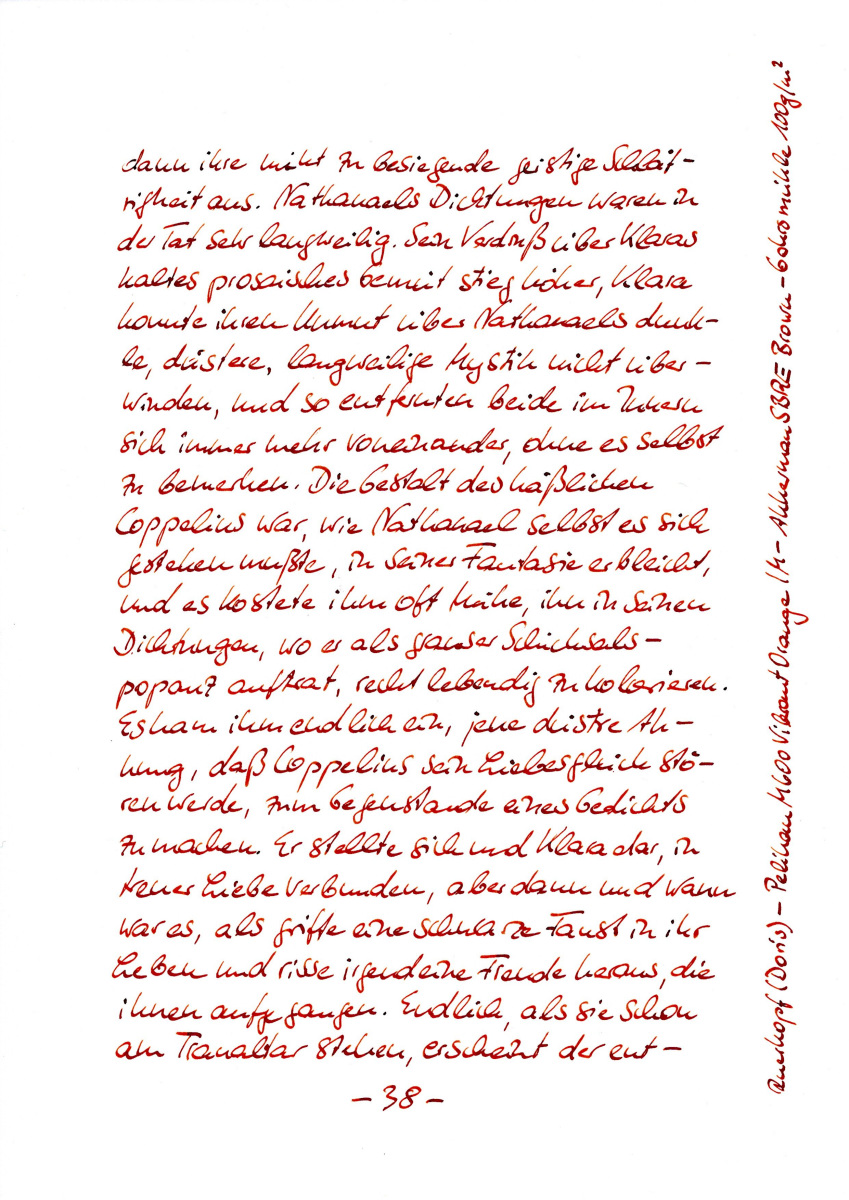 dann ihre nicht zu besiegende geistige Schläf-
rigkeit aus. Nathanaels Dichtungen waren in
der Tat sehr langweilig. Sein Verdruß über Klaras
kaltes prosaisches Gemüt stieg höher, Klara
konnte ihren Unmut über Nathanaels dunk-
le, düstere, langweilige Mystik nicht über-
winden, und so entfernten beide im Innern
sich immer mehr voneinander, ohne es selbst
zu bemerken. Die Gestalt des häßlichen
Coppelius war, wie Nathanael selbst es sich
gestehen mußte, in seiner Fantasie erbleicht,
und es kostete ihm oft Mühe, ihn in seinen
Dichtungen, wo er als grauser Schicksals-
popanz auftrat, recht lebendig zu kolorieren.
Es kam ihm endlich ein, jene düstre Ah-
nung, daß Coppelius sein Liebesglück stö-
ren werde, zum Gegenstande eines Gedichts
zu machen. Er stellte sich und Klara dar, in
treuer Liebe verbunden, aber dann und wann
war es, als griffe eine schwarze Faust in ihr
Leben und risse irgendeine Freude heraus, die
ihnen aufgegangen. Endlich, als sie schon
am Traualtar stehen, erscheint der ent-
- 38 -
Querkopf (Doris) - Pelikan M600 Vibrant Orange / M - Akkerman SBRE Brown - Gohrsmühle 100g/m²